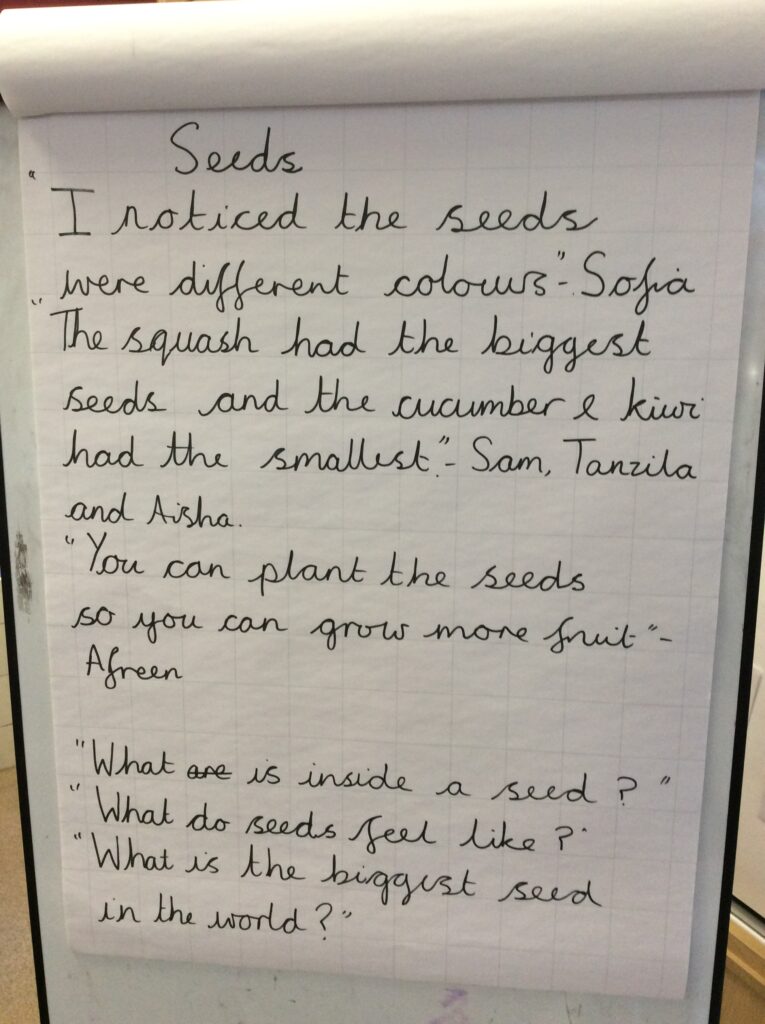 Seeds
"I noticed the seeds
were different colours"-Sofia
"The squash had the biggest
seeds and the cucumber & kiwi
had the smallest."- Sam, Tanzila
and Aisha.
"You can plant the seeds
so you can grow more fruit"-
Afreen
"What are is inside a seed?"
"What do seeds feel like?"
"What is the biggest seed
in the world?"